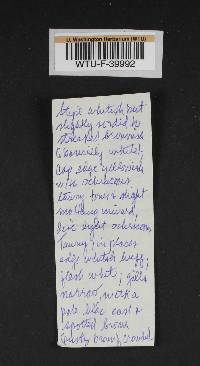 U. Washington Herbarium (WTU)
WTU-F-39992
Stipe whitish but
slightly
streaked brownish
(basically white).
Cap edge yellowish
with ochraceous
tawny tones & slight
inward,
disc light ochraceous
tawny; in places
edge whitish buff;
flesh white; gills
narrow, with a
pale lilac cast &
spotted brown
(rusty brown), crowded.